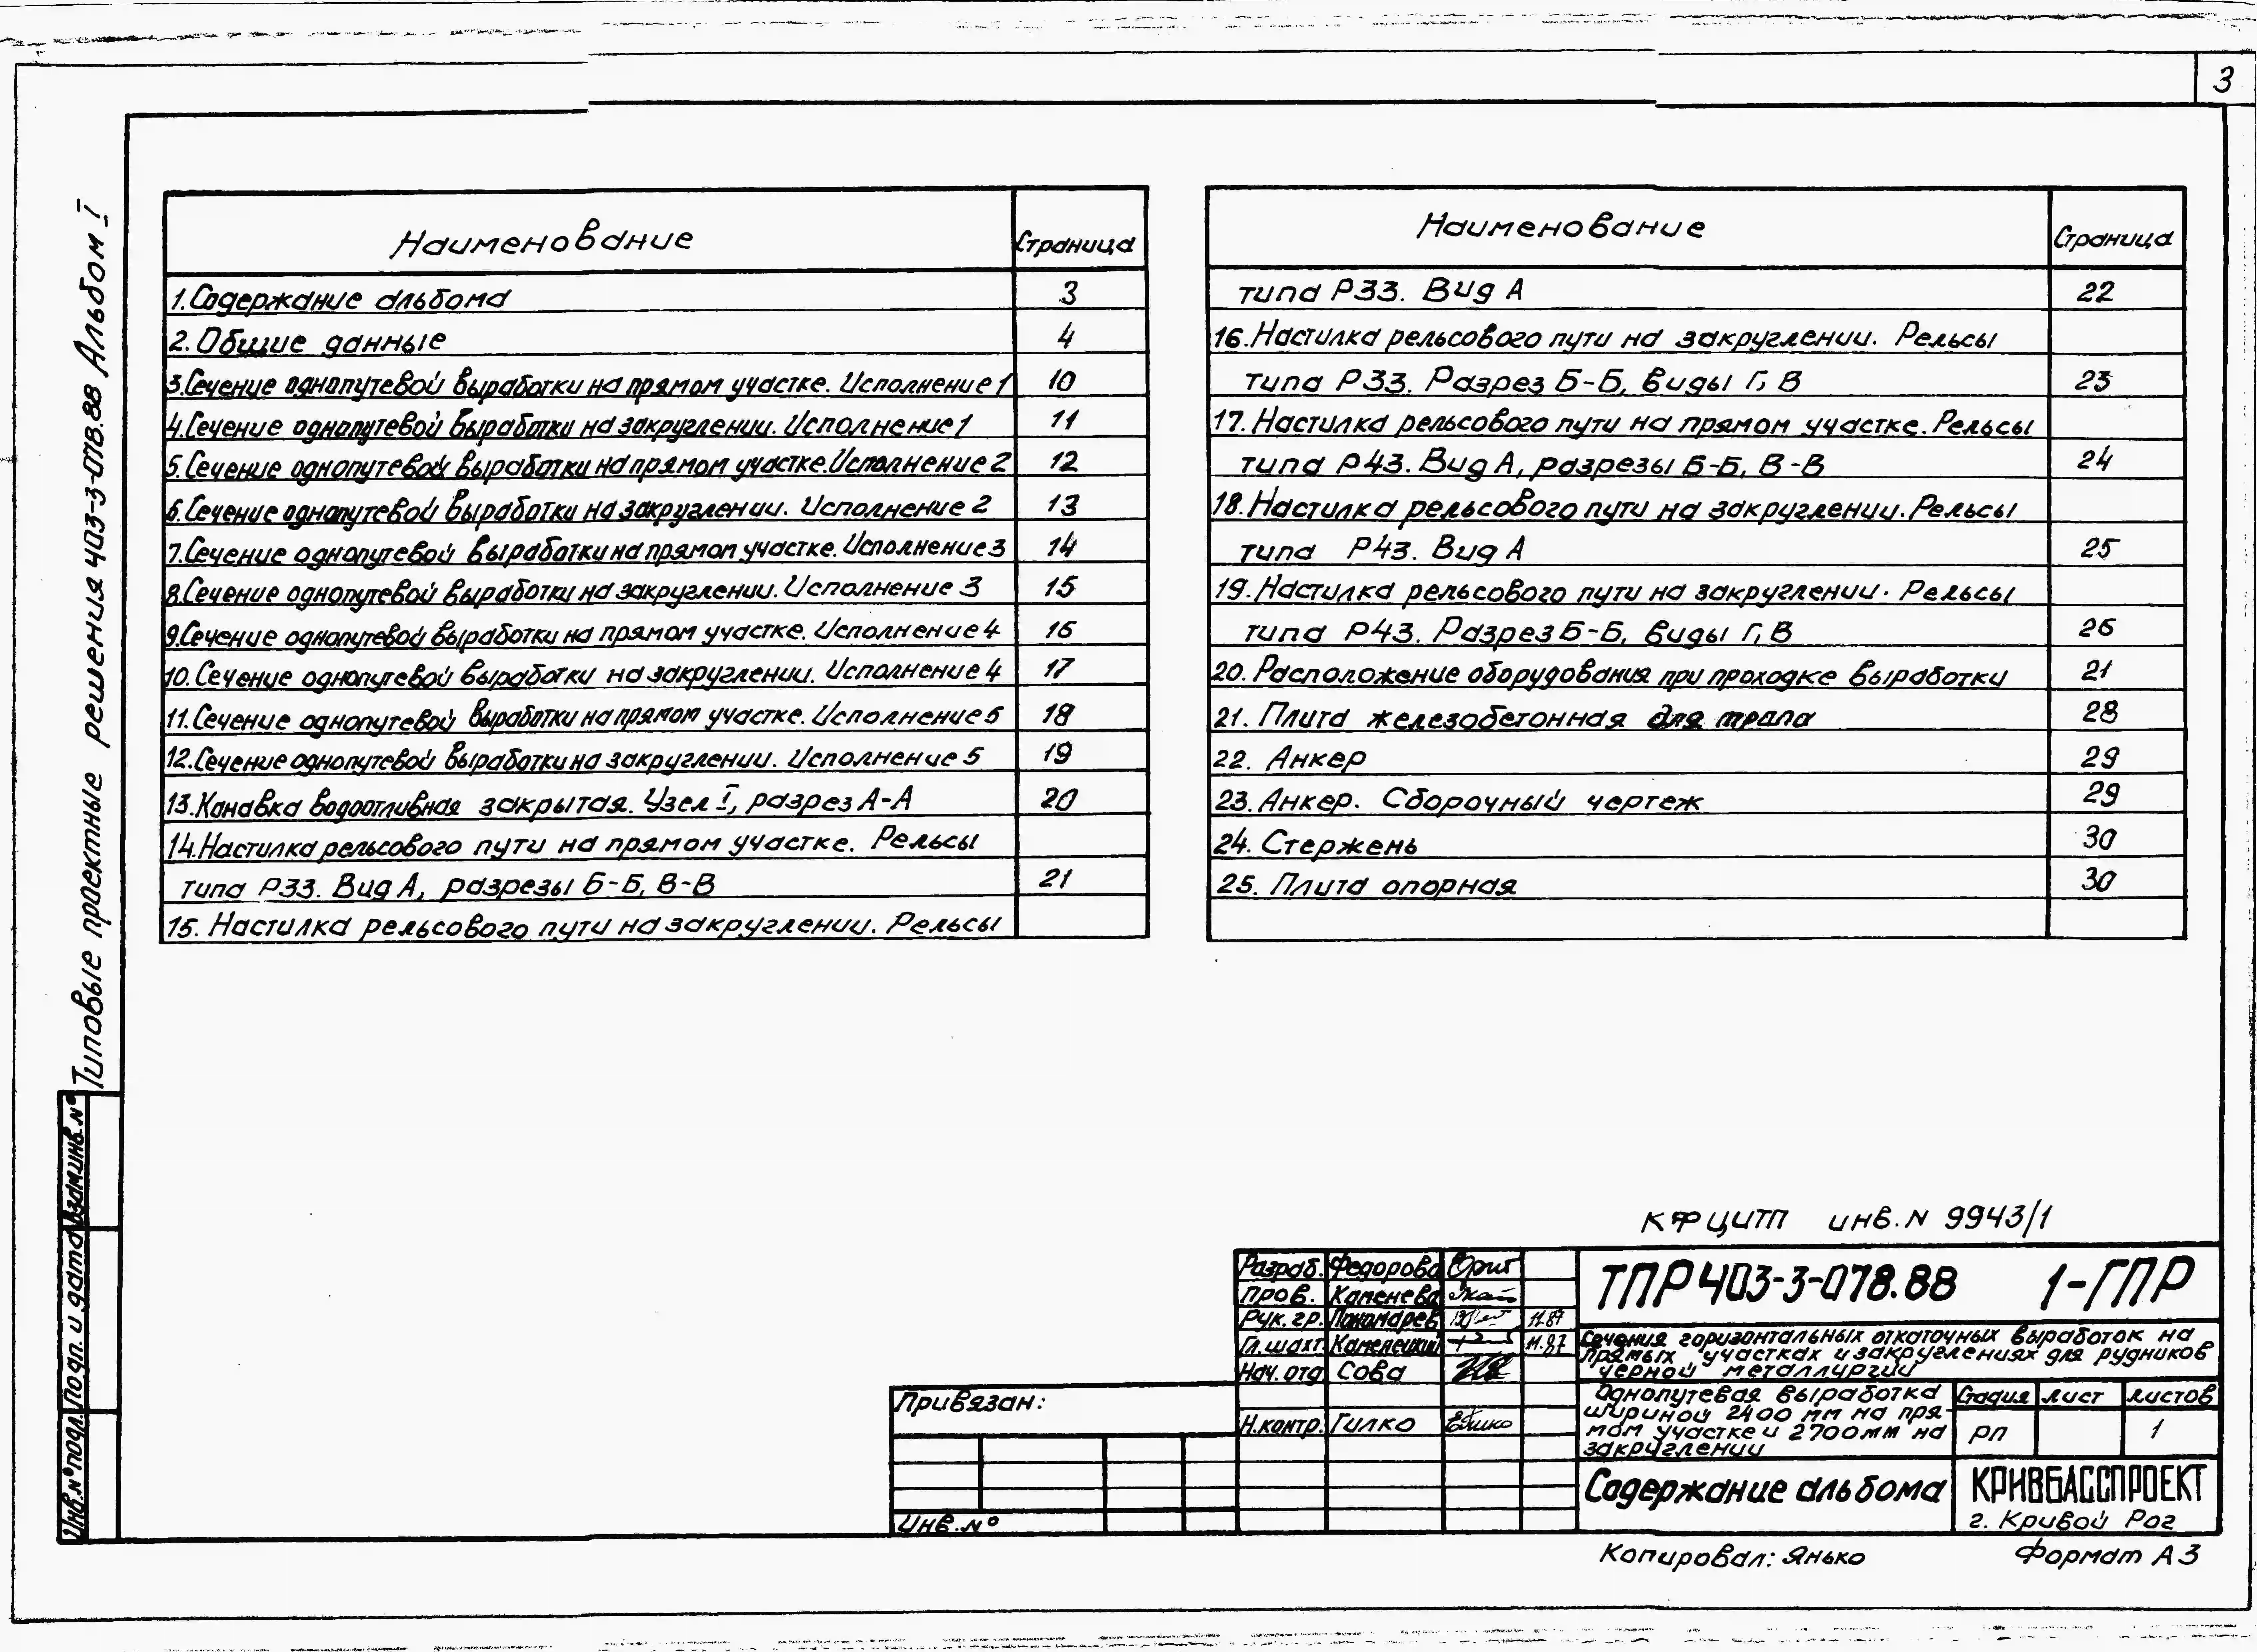 3
Типовые проектные решения 403-3-078.88 Альбом I
Наименование Страница
1. Содержание альбома 3
2. Общие данные 4
3. Сечение однопутевой выработки на прямом участке. Исполнение 1 10
4. Сечение однопутевой выработки на закруглении. Исполнение 1 11
5. Сечение однопутевой выработки на прямом участке. Исполнение 2 12
6. Сечение однопутевой выработки на закруглении. Исполнение 2 13
7. Сечение однопутевой выработки на прямом участке. Исполнение 3 14
8. Сечение однопутевой выработки на закруглении. Исполнение 3 15
9. Сечение однопутевой выработки на прямом участке. Исполнение 4 16
10. Сечение однопутевой выработки на закруглении. Исполнение 4 17
11. Сечение однопутевой выработки на прямом участке. Исполнение 5 18
12. Сечение однопутевой выработки на закруглении. Исполнение 5 19
13. Канавка водоотливная закрытая. Узел I, разрез А-А 20
14. Настилка рельсового пути на прямом участке. Рельсы
типа Р33. Вид А, разрезы Б-Б, В-В 21
15. Настилка рельсового пути на закруглении. Рельсы
Наименование Страница
типа Р33. Вид А 22
16. Настилка рельсового пути на закруглении. Рельсы
типа Р33. Разрез Б-Б, виды Г, В 23
17. Настилка рельсового пути на прямом участке. Рельсы
типа Р43. Вид А, разрезы Б-Б, В-В 24
18. Настилка рельсового пути на закруглении. Рельсы
типа Р43. Вид А 25
19. Настилка рельсового пути на закруглении. Рельсы
типа Р43. Разрез Б-Б, виды Г, В 26
20. Расположение оборудования при проходке выработки 21
21. Плита железобетонная для трапа 28
22. Анкер 29
23. Анкер. Сборочный чертеж 29
24. Стержень 30
25. Плита опорная 30
Инв.№подл. Подп. и дата Взам.инв.№
КФ ЦИТП инв.N 9943/1
Разраб. Федорова
Пров. Каменева
Рук.гр. Пономарев 11.87
Гл.шахт. Каменецкий 11.87
Нач.отд Сова
Н.контр. Гилко
Привязан:
Инв.№
ТПР 403-3-078.88 1-ГПР
Сечения горизонтальных откаточных выработок на
прямых участках и закруглениях для рудников
черной металлургии
Однопутевая выработка
шириной 2400 мм на пря-
мом участке и 2700мм на
закруглении
Стадия Лист Листов
РП 1
Содержание альбома
КРИВБАССПРОЕКТ
г. Кривой Рог
Копировал: Янько Формат А3